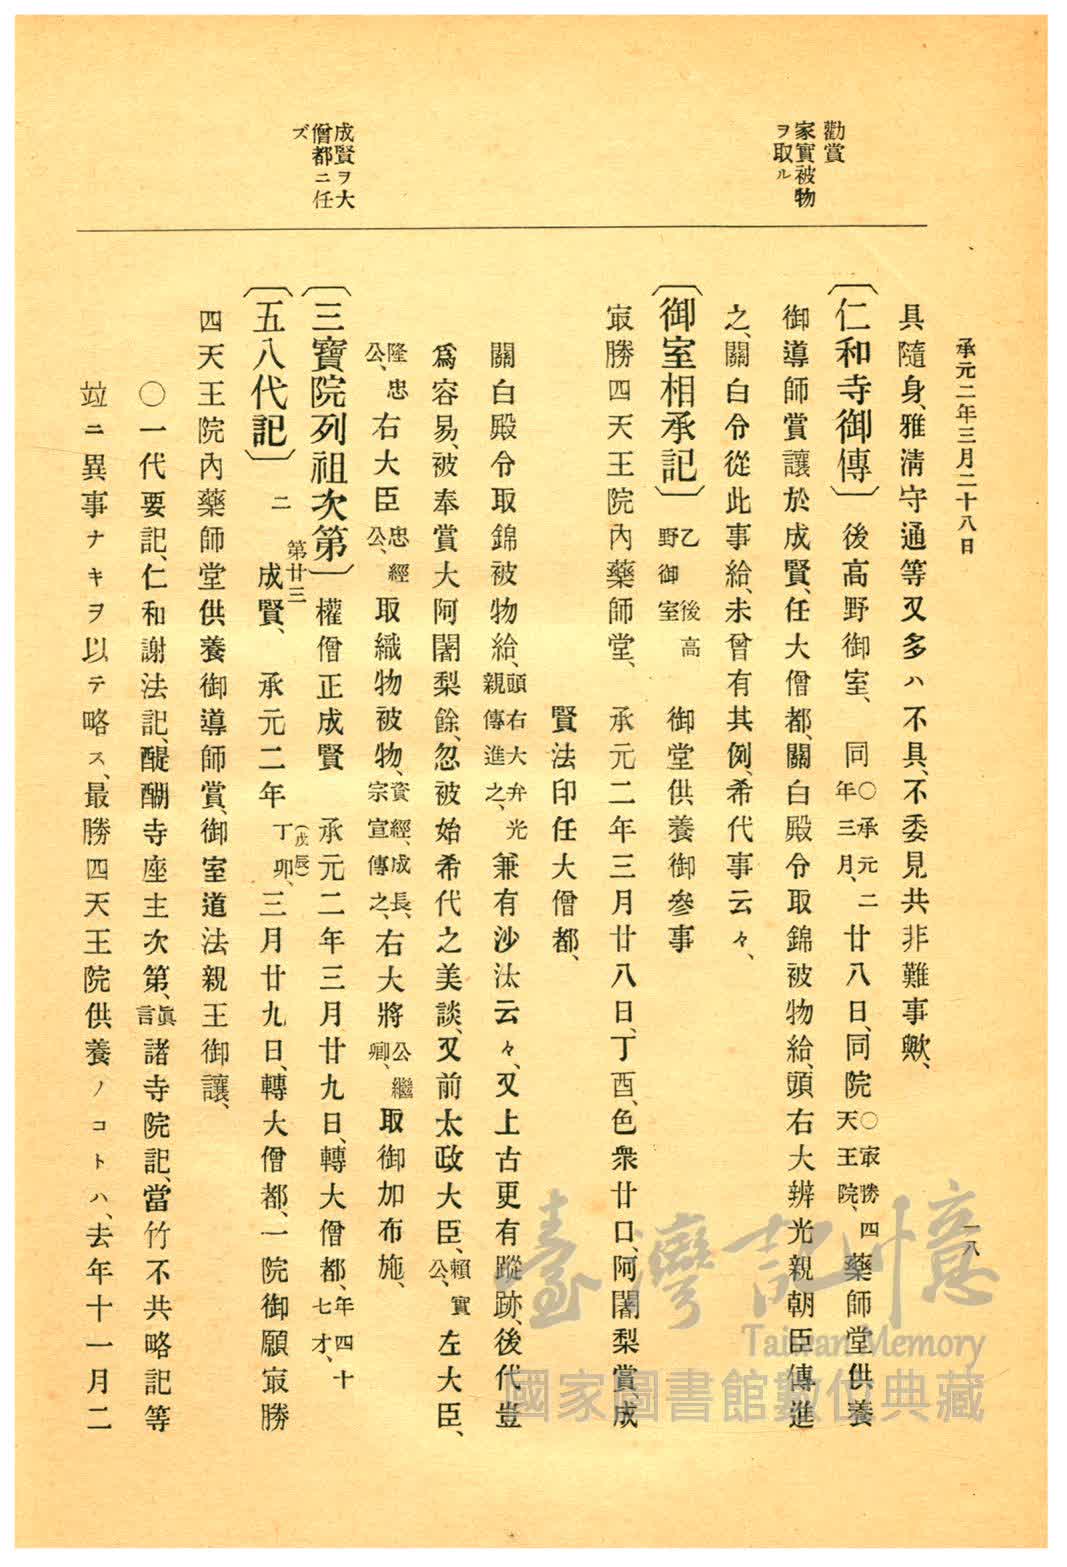 承元二年三月二十八日
一八
勸賞
家實被物
ヲ取ル
成賢ヲ大
僧都ニ任
ズ
具隨身、雅淸守通等又多ハ不具、不委見共非難事歟、
〔仁和寺御傳〕後高野御室、同〇承元二年三月、廿八日、同院〇㝡勝四天王院、藥師堂供養
御導師賞讓於成賢、任大僧都、關白殿令取錦被物給、頭右大辨光親朝臣傳進
之、關白令從此事給、未曾有其例、希代事云々、
〔御室相承記〕乙後高野御室 御堂供養御參事
㝡勝四天王院內藥師堂、承元二年三月廿八日、丁酉、色衆廿口、阿闍梨賞、成
賢法印任大僧都、
關白殿令取錦被物給、頭右大弁光親傳進之、兼有沙汰云々、又上古更有蹤跡、後代豈
爲容易、被奉賞大阿闍梨餘、忽被始希代之美談、又前太政大臣、賴實公、左大臣、
隆忠公、右大臣忠經公、取織物被物、資經、成長、宗宣傳之、右大將公繼卿、取御加布施、
〔三寶院列祖次第〕權僧正成賢 承元二年三月廿九日、轉大僧都、年四十七才、
〔五八代記〕二 第廿三成賢、承元二年（戊辰）丁卯、三月廿九日、轉大僧都、一院御願㝡勝
四天王院內藥師堂供養御導師賞、御室道法親王御讓、
〇一代要記、仁和謝法記、醍醐寺座主次第、眞言諸寺院記、當竹不共略記等
竝ニ異事ナキヲ以テ略ス、最勝四天王院供養ノコトハ、去年十一月二
臺灣記憶
Taiwan Memory
國家圖書館數位典藏